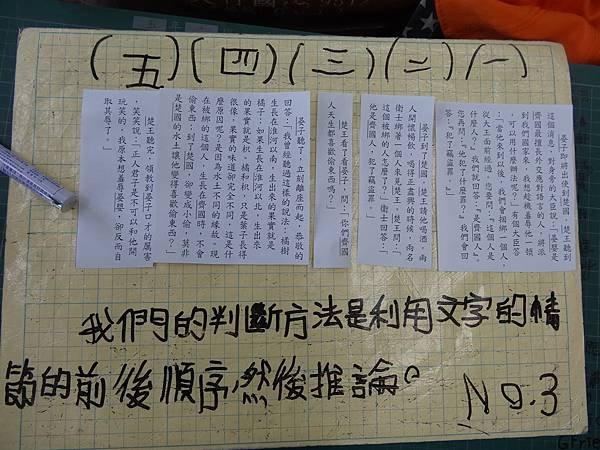 (五)(四)(三)(二)(一)
晏子即將出使到楚國,楚王聽到
這個消息,對身旁的大臣說:「晏嬰是
齊國最擅長外交應對語言的人,將派
到我們國家來,我想趁機羞辱他一頓
,可以用什麼辦法呢?」有個大臣答
:「當他來到以後,我們會捆綁一個人
從大王面前經過,您要問:『這個人是
什麼人?』我們就回答:『是齊國人。』
您再問:『他犯了什麼罪?』我們會回
答:『犯了竊盜罪。』」
晏子到了楚國,楚王請他喝酒,兩
人開懷暢飲,喝得正盡興的時候,兩名
衛士綁著一個人來見楚王,楚王問:「
這個被綁的人怎麼了?」衛士回答:「
他是齊國人,犯了竊盜罪。」
楚王看了看晏子,問:「你們齊國
人天生都喜歡偷東西嗎?」
晏子聽了,立刻離座而起,恭敬的
回答:「我曾經聽過這樣的說法:橘樹
生長在淮河以南,生出來的果實就是
橘子;如果生長在淮河以北,生出來
的果實就是枳。橘和枳,只是葉子長得
很像,果實的味道卻完全不同,這是什
麼原因呢?是因為水土不同的緣故。現
在被綁的這個人,生長在齊國時,不會
偷東西;到了楚國,卻變成小偷,莫非
是楚國的水土讓他變得喜歡偷東西?」
楚王聽完,領教到晏子口才的厲害
,笑笑說:「正人君子是不可以和他開
玩笑的,我原本想羞辱晏嬰,卻反而自
取其辱了。」
我們的判斷方法是利用文字的情
節的前後順序,然後推論。
NO.3